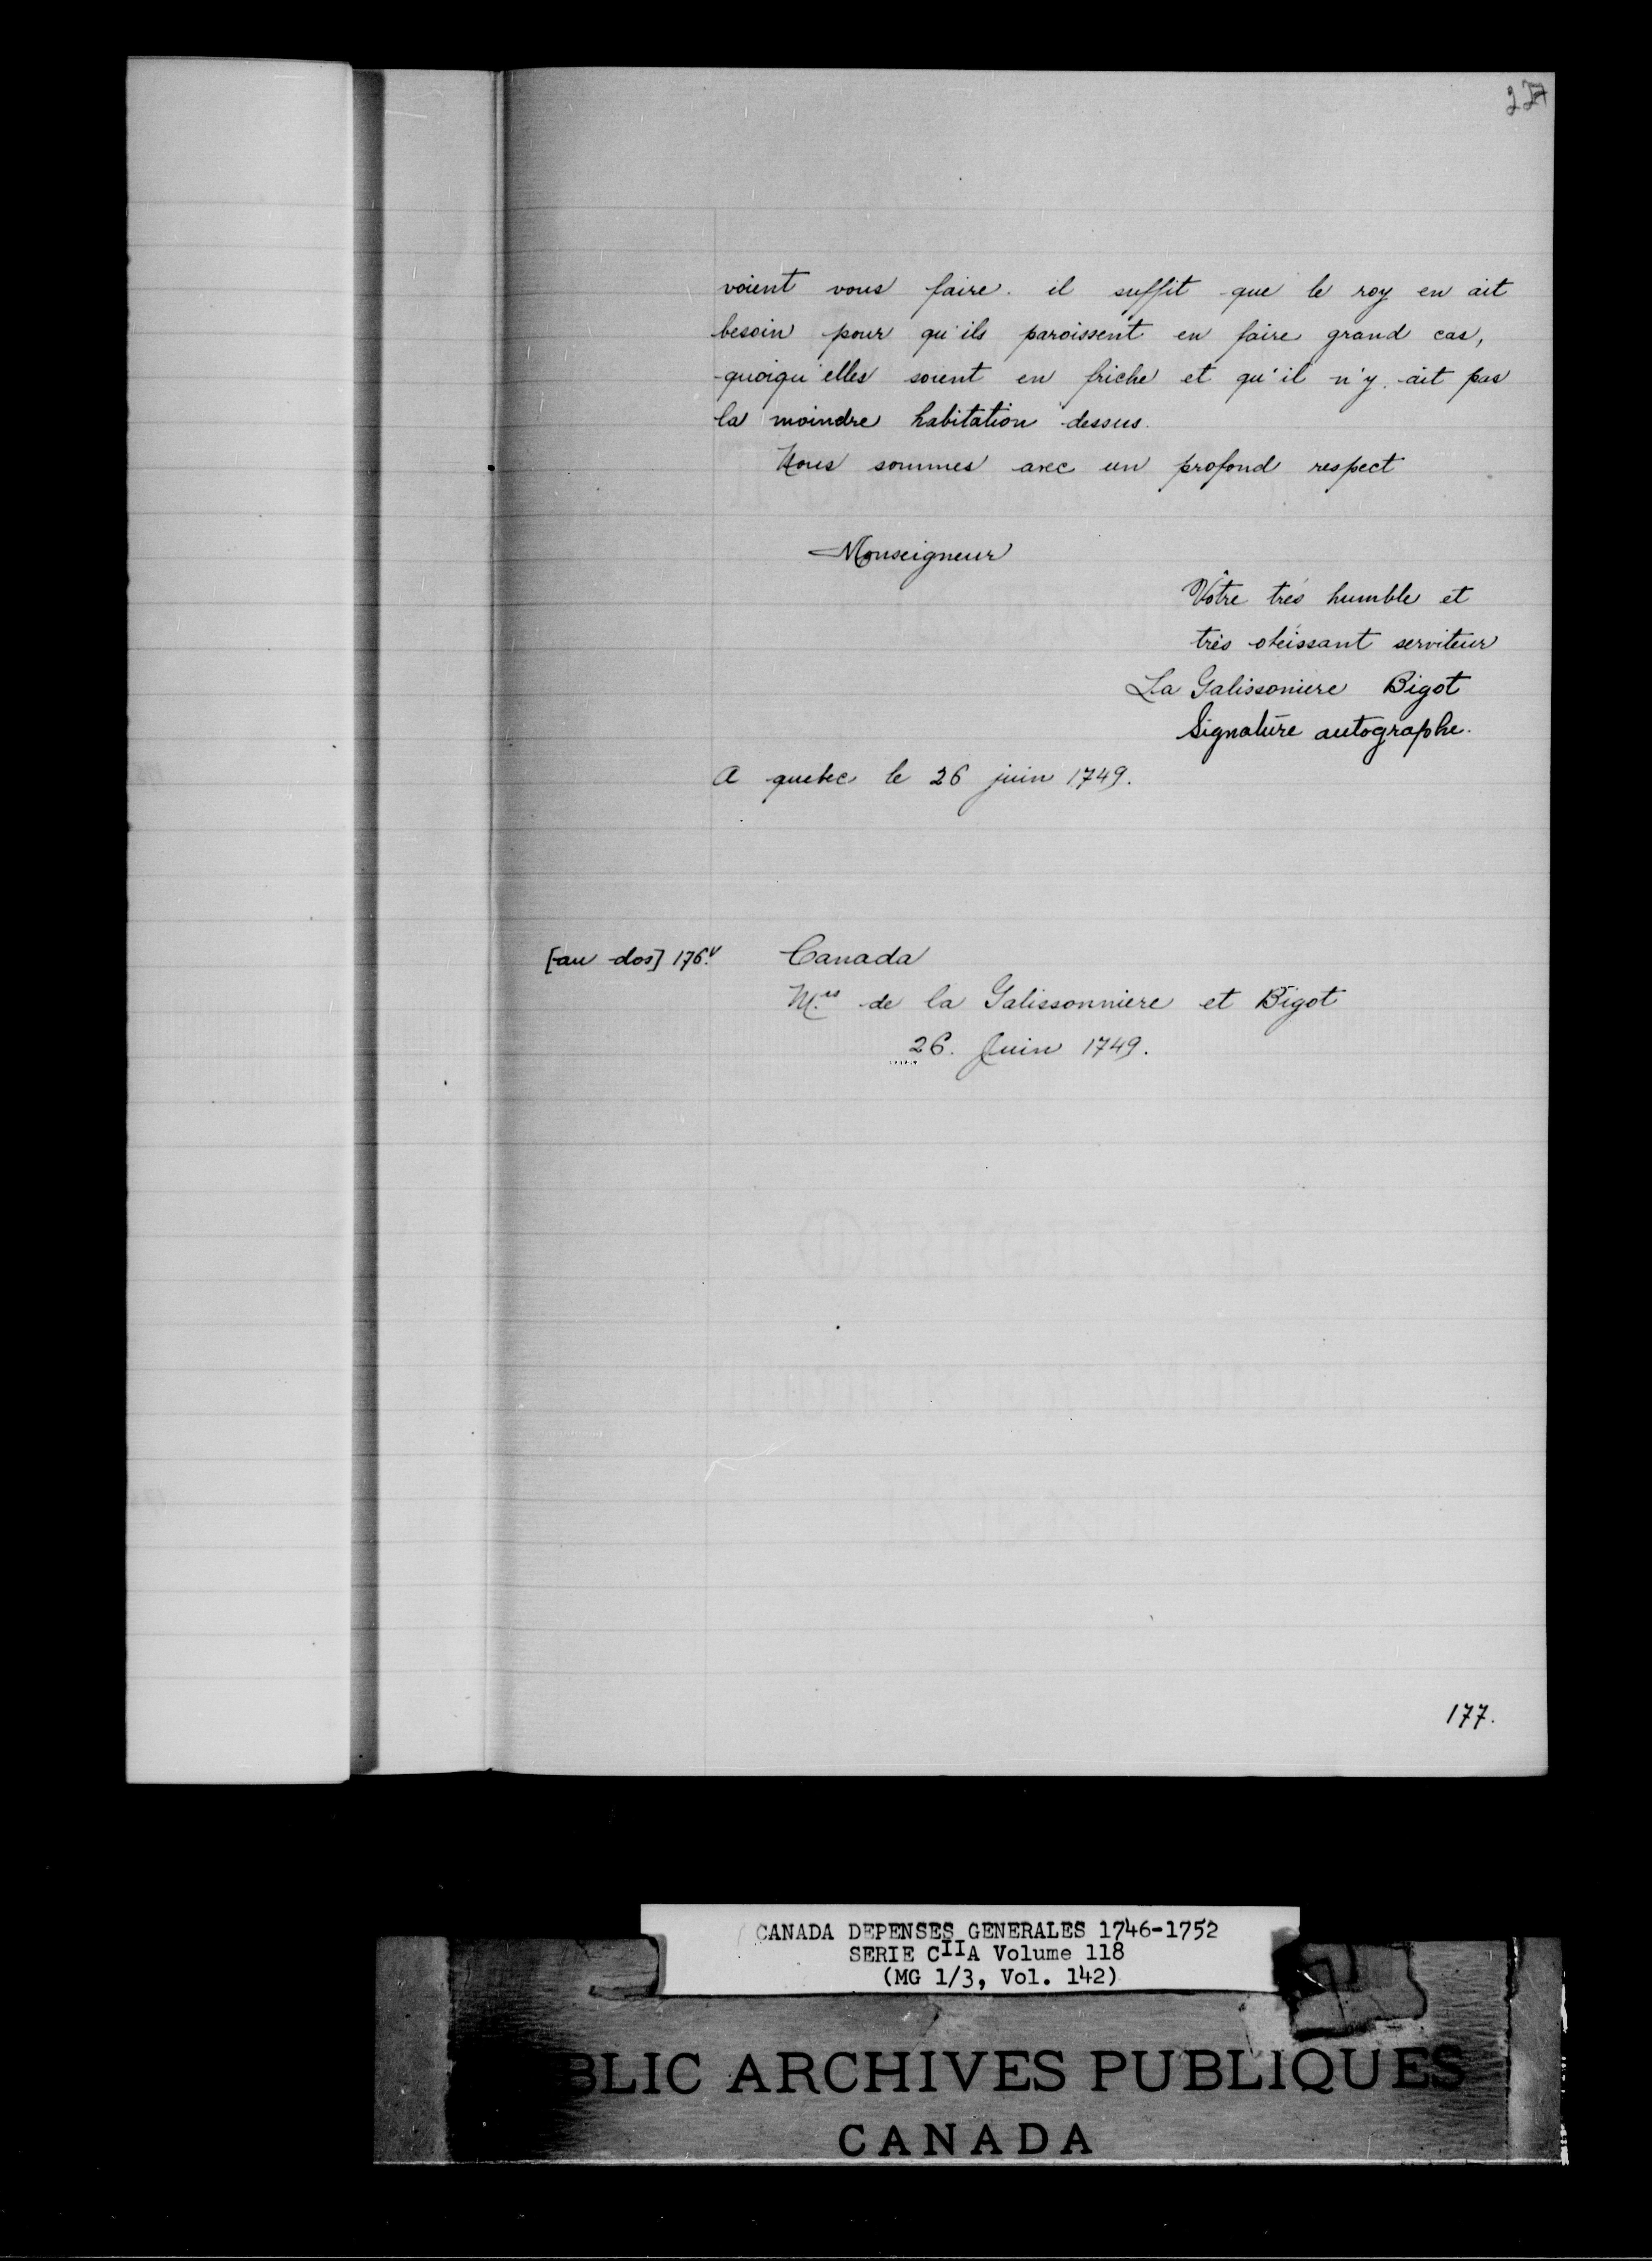 227
voient vous faire. il suffit que le roy en ait
besoin pour qu'ils paroissent en faire grand cas,
quoiqu'elles soient en friche et qu'il n'y ait pas
la moindre habitation dessus.
Nous sommes avec un profond respect
Monseigneur
Vôtre très humble et
très obéissant serviteur
La Galissoniere Bigot
Signature autographe.
A quebec le 26 juin 1749.
[au dos] 176.v Canada
M.rs de la Galissonniere et Bigot
26. Juin 1749.
177.
CANADA DEPENSES GENERALES 1746-1752
SERIE CIIA Volume 118
(MG 1/3, Vol. 142)
BLIC ARCHIVES PUBLIQUES
CANADA